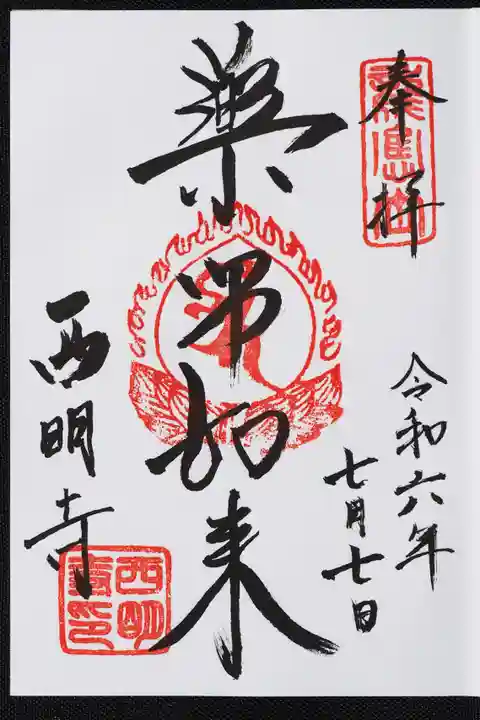 奉拝
令和六年
七月七日
薬師如来
西明寺